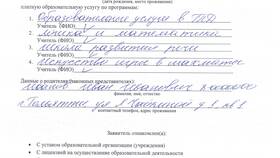 (дата рождения, место проживания)
платную образовательную услугу по программам:
1. Образовательные услуги в ГПД
Учитель (ФИО)
2. и математика
Учитель (ФИО)
3. Школа развития речи
Учитель (ФИО)
4. Искусство игры в шахматы
Учитель (ФИО)
Данные о родителях (законных представителях):
Иванов Иван Иванович
фамилия, имя, отчество
г. Тольятти ул.
контактный телефон, адрес проживания
Заявитель ознакомлен(а):
• С уставом образовательной организации (учреждения)
• С лицензией на осуществление образовательной деятельности